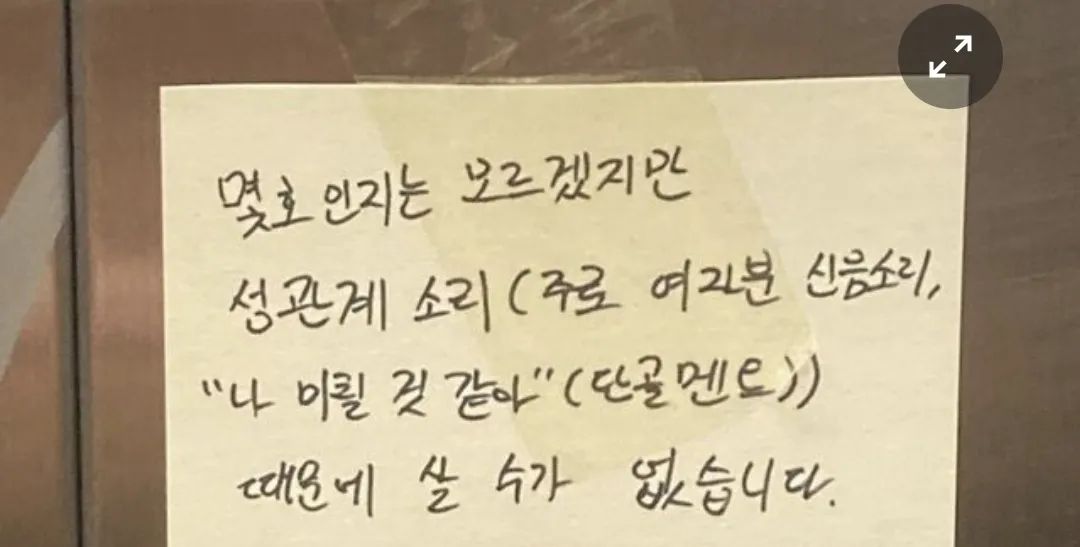 몇호인지는 모르겠지만
성관계 소리 (주로 여자분 신음소리,
"나 미칠 것 같아" (단골멘트))
때문에 살 수가 없습니다.